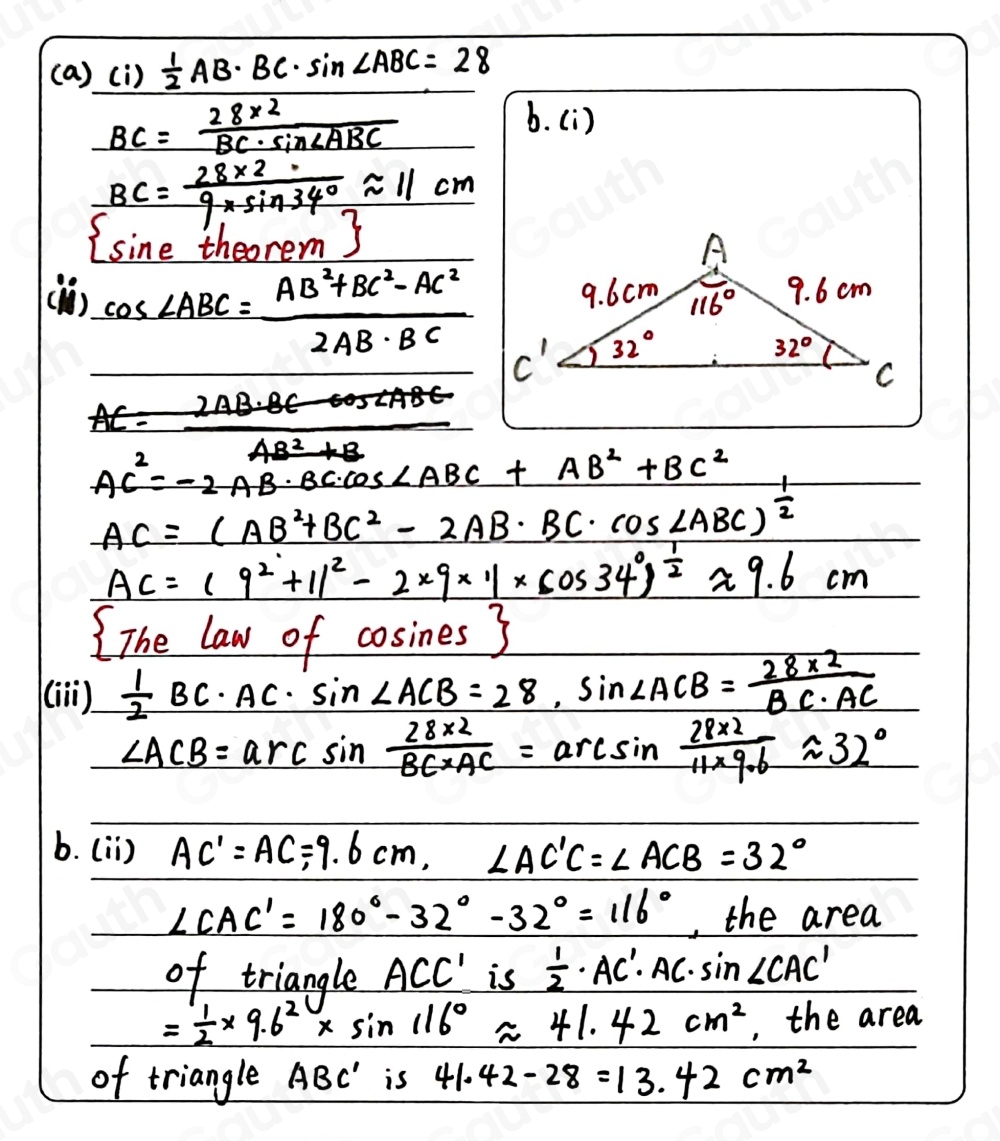 (a) (i) 1/2 AB · BC · sin ∠ABC = 28
BC = 28×2 / BC · sin∠ABC
BC = 28×2 / 9×sin34° ≈ 11 cm
{sine theorem}
(ii) cos ∠ABC = AB²+BC²-AC² / 2AB · BC
AC = 2AB·BC cos∠ABC / AB² + B
AC² = -2AB · BC·cos∠ABC + AB² + BC²
AC = (AB²+BC² - 2AB · BC · cos∠ABC)^1/2
AC = (9²+11² - 2×9×11×cos34°)^1/2 ≈ 9.6 cm
{The law of cosines}
(iii) 1/2 BC · AC · sin∠ACB = 28, sin∠ACB = 28×2 / BC·AC
∠ACB = arc sin 28×2 / BC×AC = arcsin 28×2 / 11×9.6 ≈ 32°
b. (i)
A
9.6cm 116° 9.6 cm
C' 32° 32° C
b. (ii) AC' = AC = 9.6 cm, ∠AC'C = ∠ACB = 32°
∠CAC' = 180° - 32° - 32° = 116°, the area
of triangle ACC' is 1/2 · AC' · AC · sin∠CAC'
= 1/2 × 9.6² × sin 116° ≈ 41.42 cm², the area
of triangle ABC' is 41.42 - 28 = 13.42 cm²
Gauth